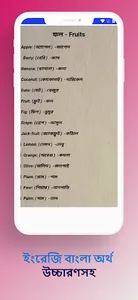 ফল - Fruits
Apple (আপেল) - আপেল
Berry (বেরি) - জাম
Banana (বানানা) - কলা
Coconut (কোকোনাট) - নারিকেল
Date (ডেট) - খেজুর
Fruit (ফ্রুট) - ফল
Fig (ফিগ) - ডুমুর
Grape (গ্রেপ) - আঙ্গুর
Jack-fruit (জ্যাকফ্রুট) - কাঁঠাল
Lemon (লেমন) - লেবু
Orange (অরেঞ্জ) - কমলা
Olive (অলিভ) - জলপাই
Plum (প্লাম) -
Pear (পিয়ার) - নাশপাতি
Palm (পাম) - তাল
ইংরেজি বাংলা অর্থ
উচ্চারণসহ